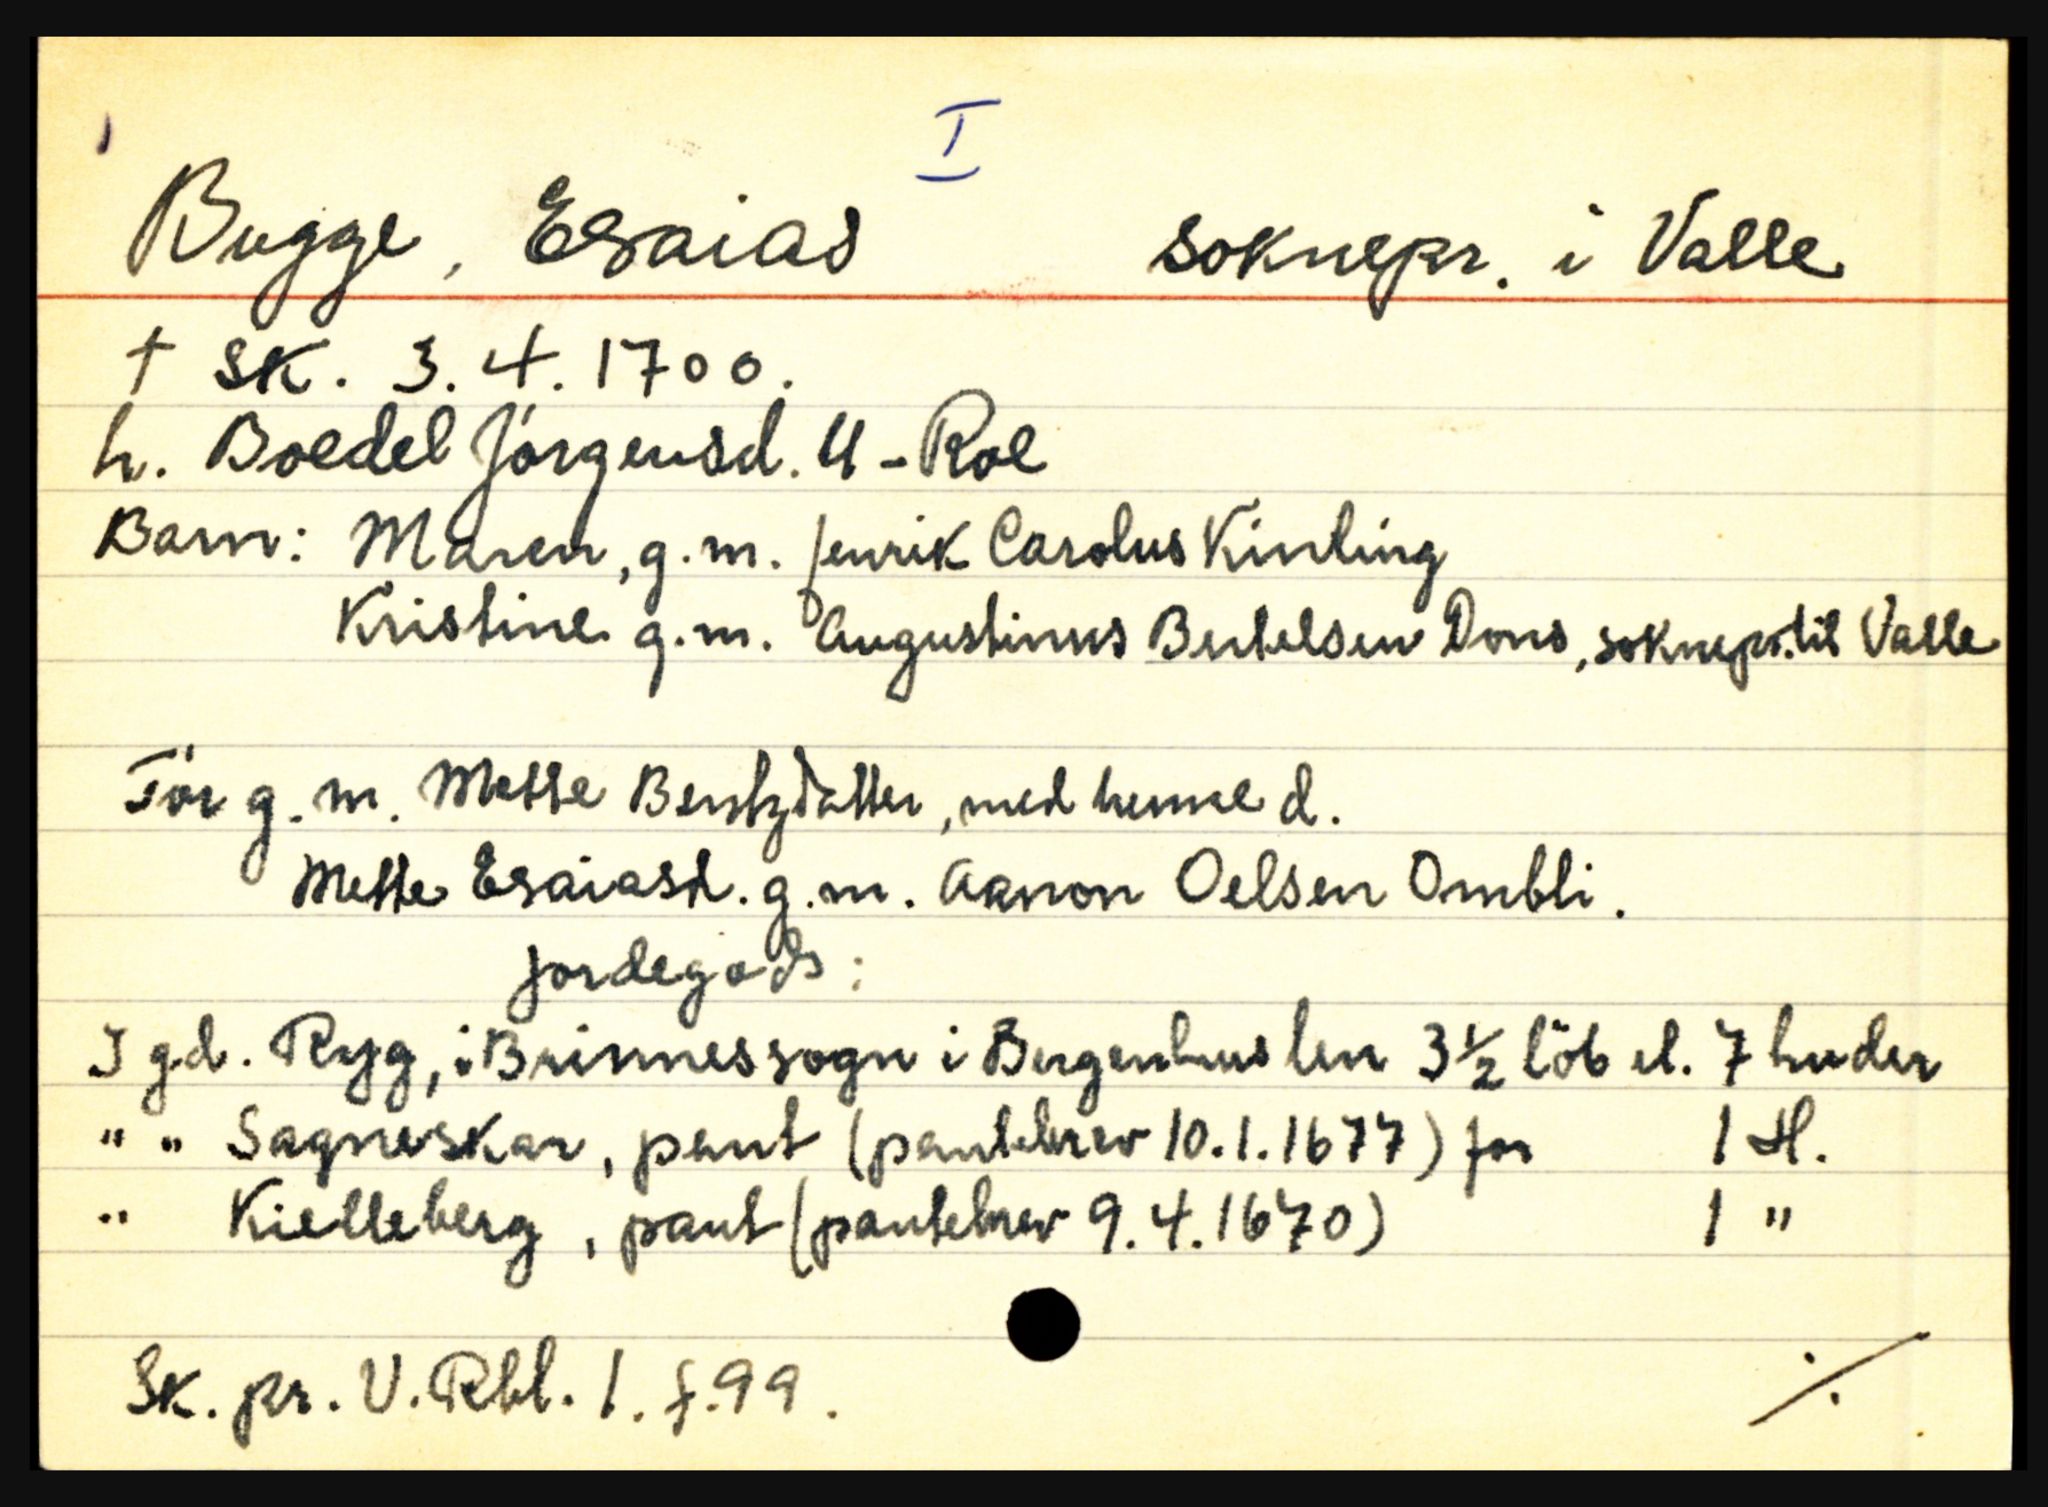 I
Bugge, Esaias soknepr. i Valle
† Sk. 3. 4. 1700.
h. Boedel Jörgensd. U-Roe
Barn: Maren, g.m. Jenrik Carolus Kinting
Kristine g.m. Augustinus Bertelsen Dons, soknepr. til Valle
För g.m. Mette Bentzdatter, med henne d.
Mette Esaiasd. g.m. Aanon Oelsen Ombli.
Jordegods:
I gd. Ryg, i Brinnessogn i Bergenhus len 3½ löb el. 7 huder
" " Sagneskar, pant (pantebrev 10.1.1677) for 1 H.
" Kielleberg, pant (pantebrev 9.4.1670) 1 "
Sk. pr. V. Rbl. 1. f. 99. ./.